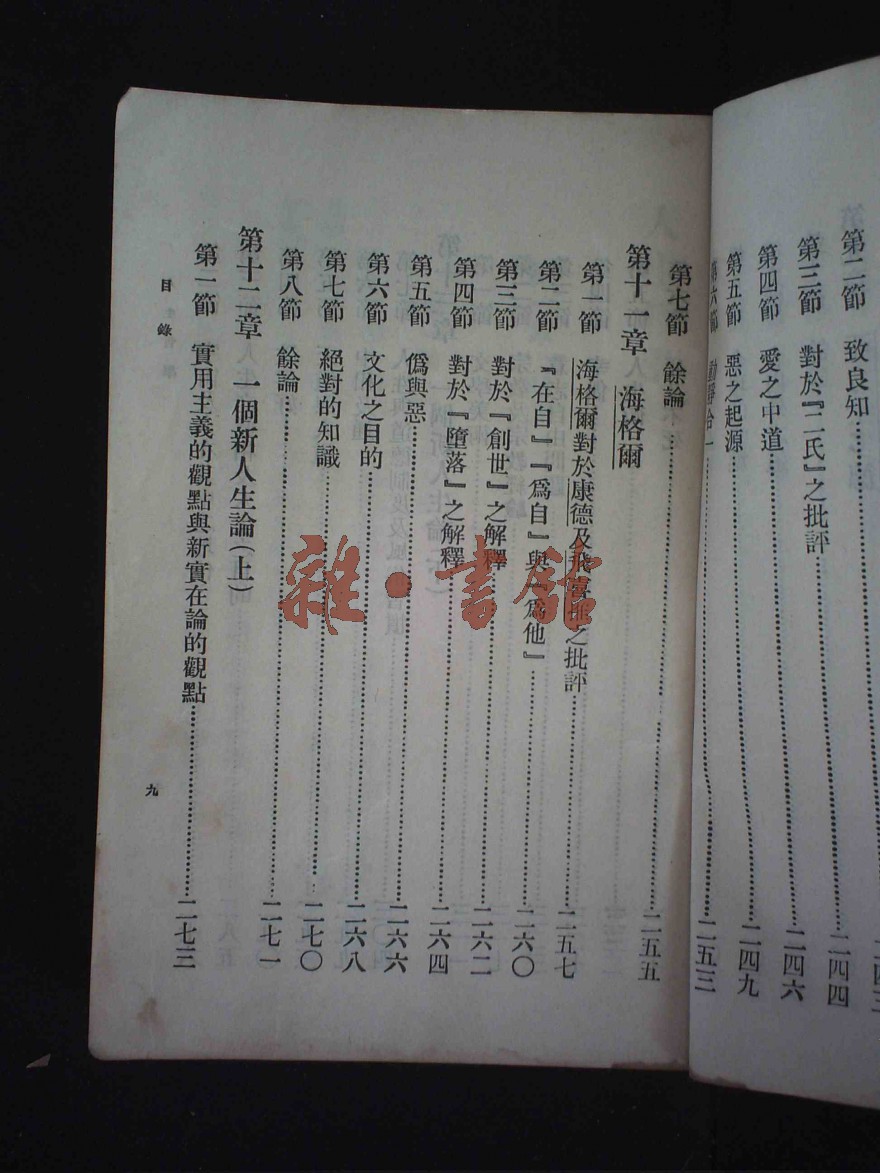 二四三
第二節　致良知……二四四
第三節　對於『二氏』之批評……二四六
第四節　愛之中道……二四九
第五節　惡之起源……二五三
第六節　動靜合一
第七節　餘論……二五五
第十一章　海格爾
第一節　海格爾對於康德及飛喜推之批評……二五七
第二節　『在自』『爲自』與『爲他』……二六〇
第三節　對於『創世』之解釋……二六二
第四節　對於『墮落』之解釋……二六四
第五節　僞與惡……二六六
第六節　文化之目的……二六八
第七節　絕對的知識……二七〇
第八節　餘論……二七一
第十二章　一個新人生論（上）
第一節　實用主義的觀點與新實在論的觀點……二七三
目錄
九
雜·書館